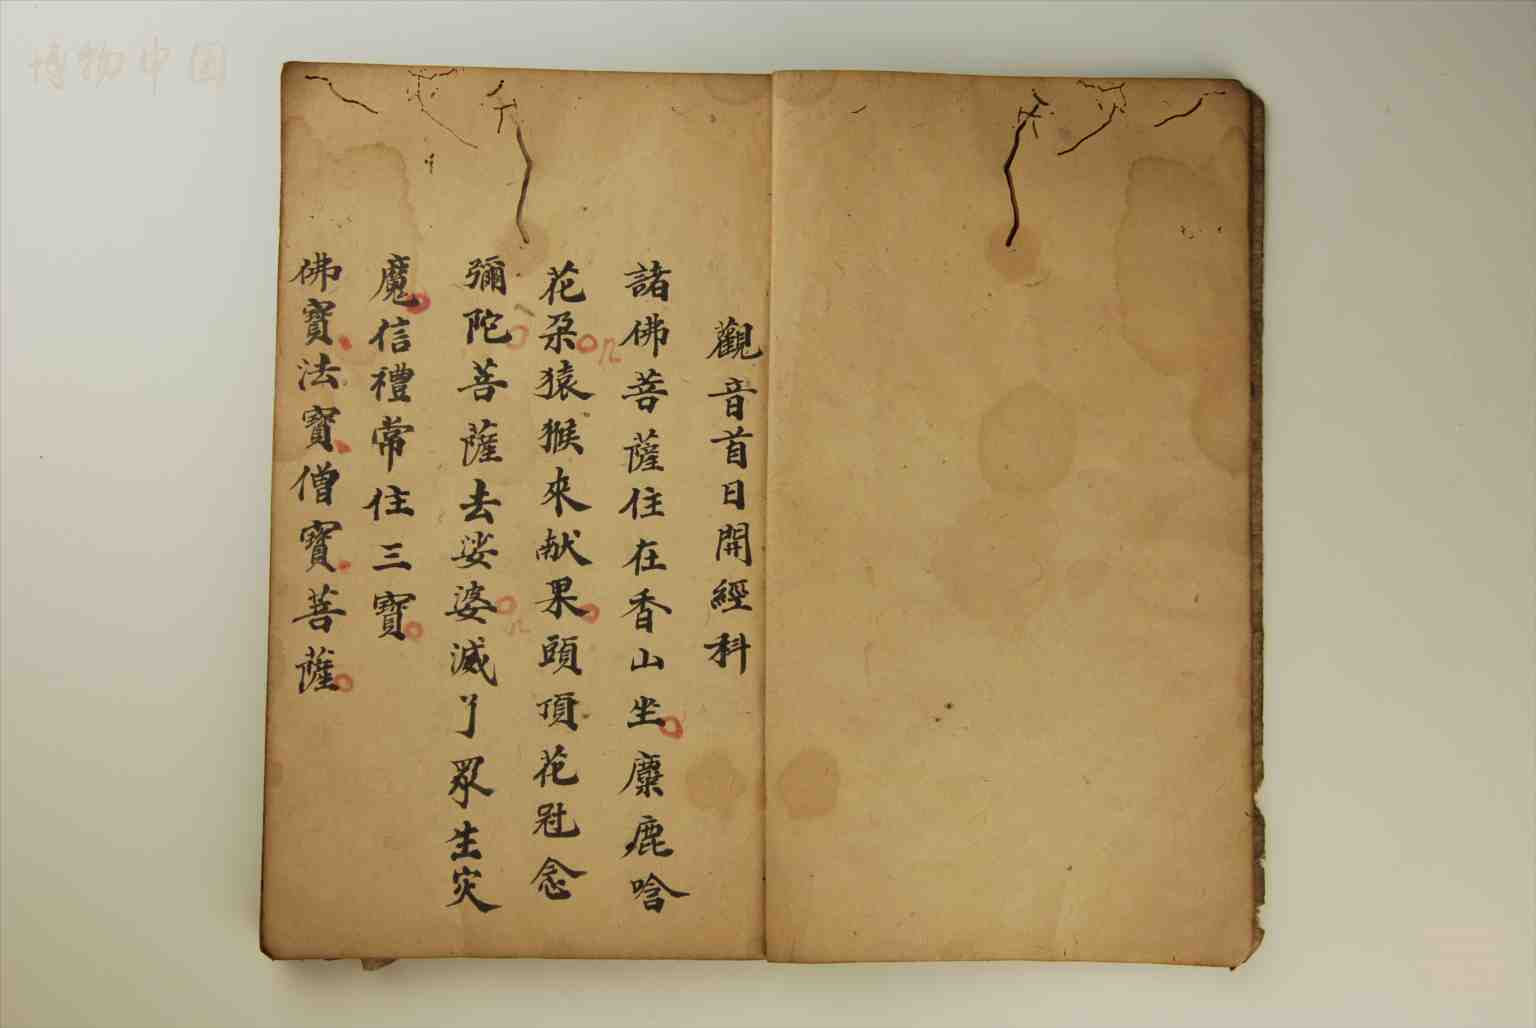 觀音首日開經科
諸佛菩薩住在香山坐麋鹿唅
花朶猿猴來献果頭頂花冠念
彌陀菩薩去娑婆滅了眾生灾
魔信禮常住三寶
佛寶法寶僧寶菩薩
博物中国